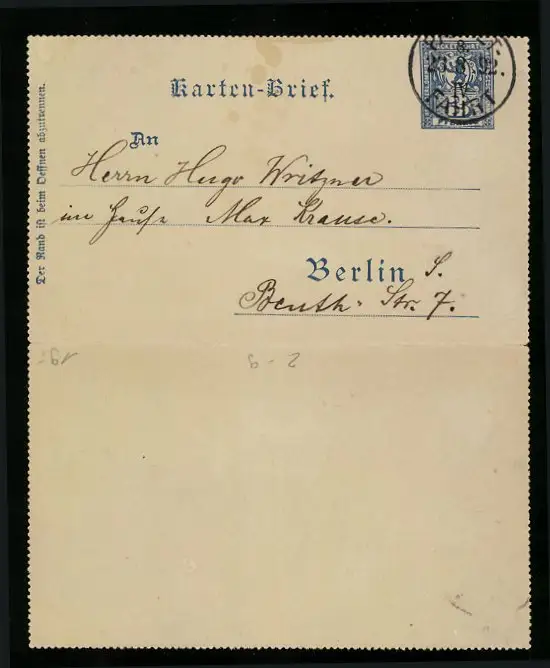 PACKETFAHRT
23.8.92.
IV
Karten-Brief.
An
Herrn Hugo Writzner
im Hause Max Krause.
Berlin S.
Beuth-Str. 7.
Der Rand ist beim Oeffnen abzutrennen.
19.-
2-9